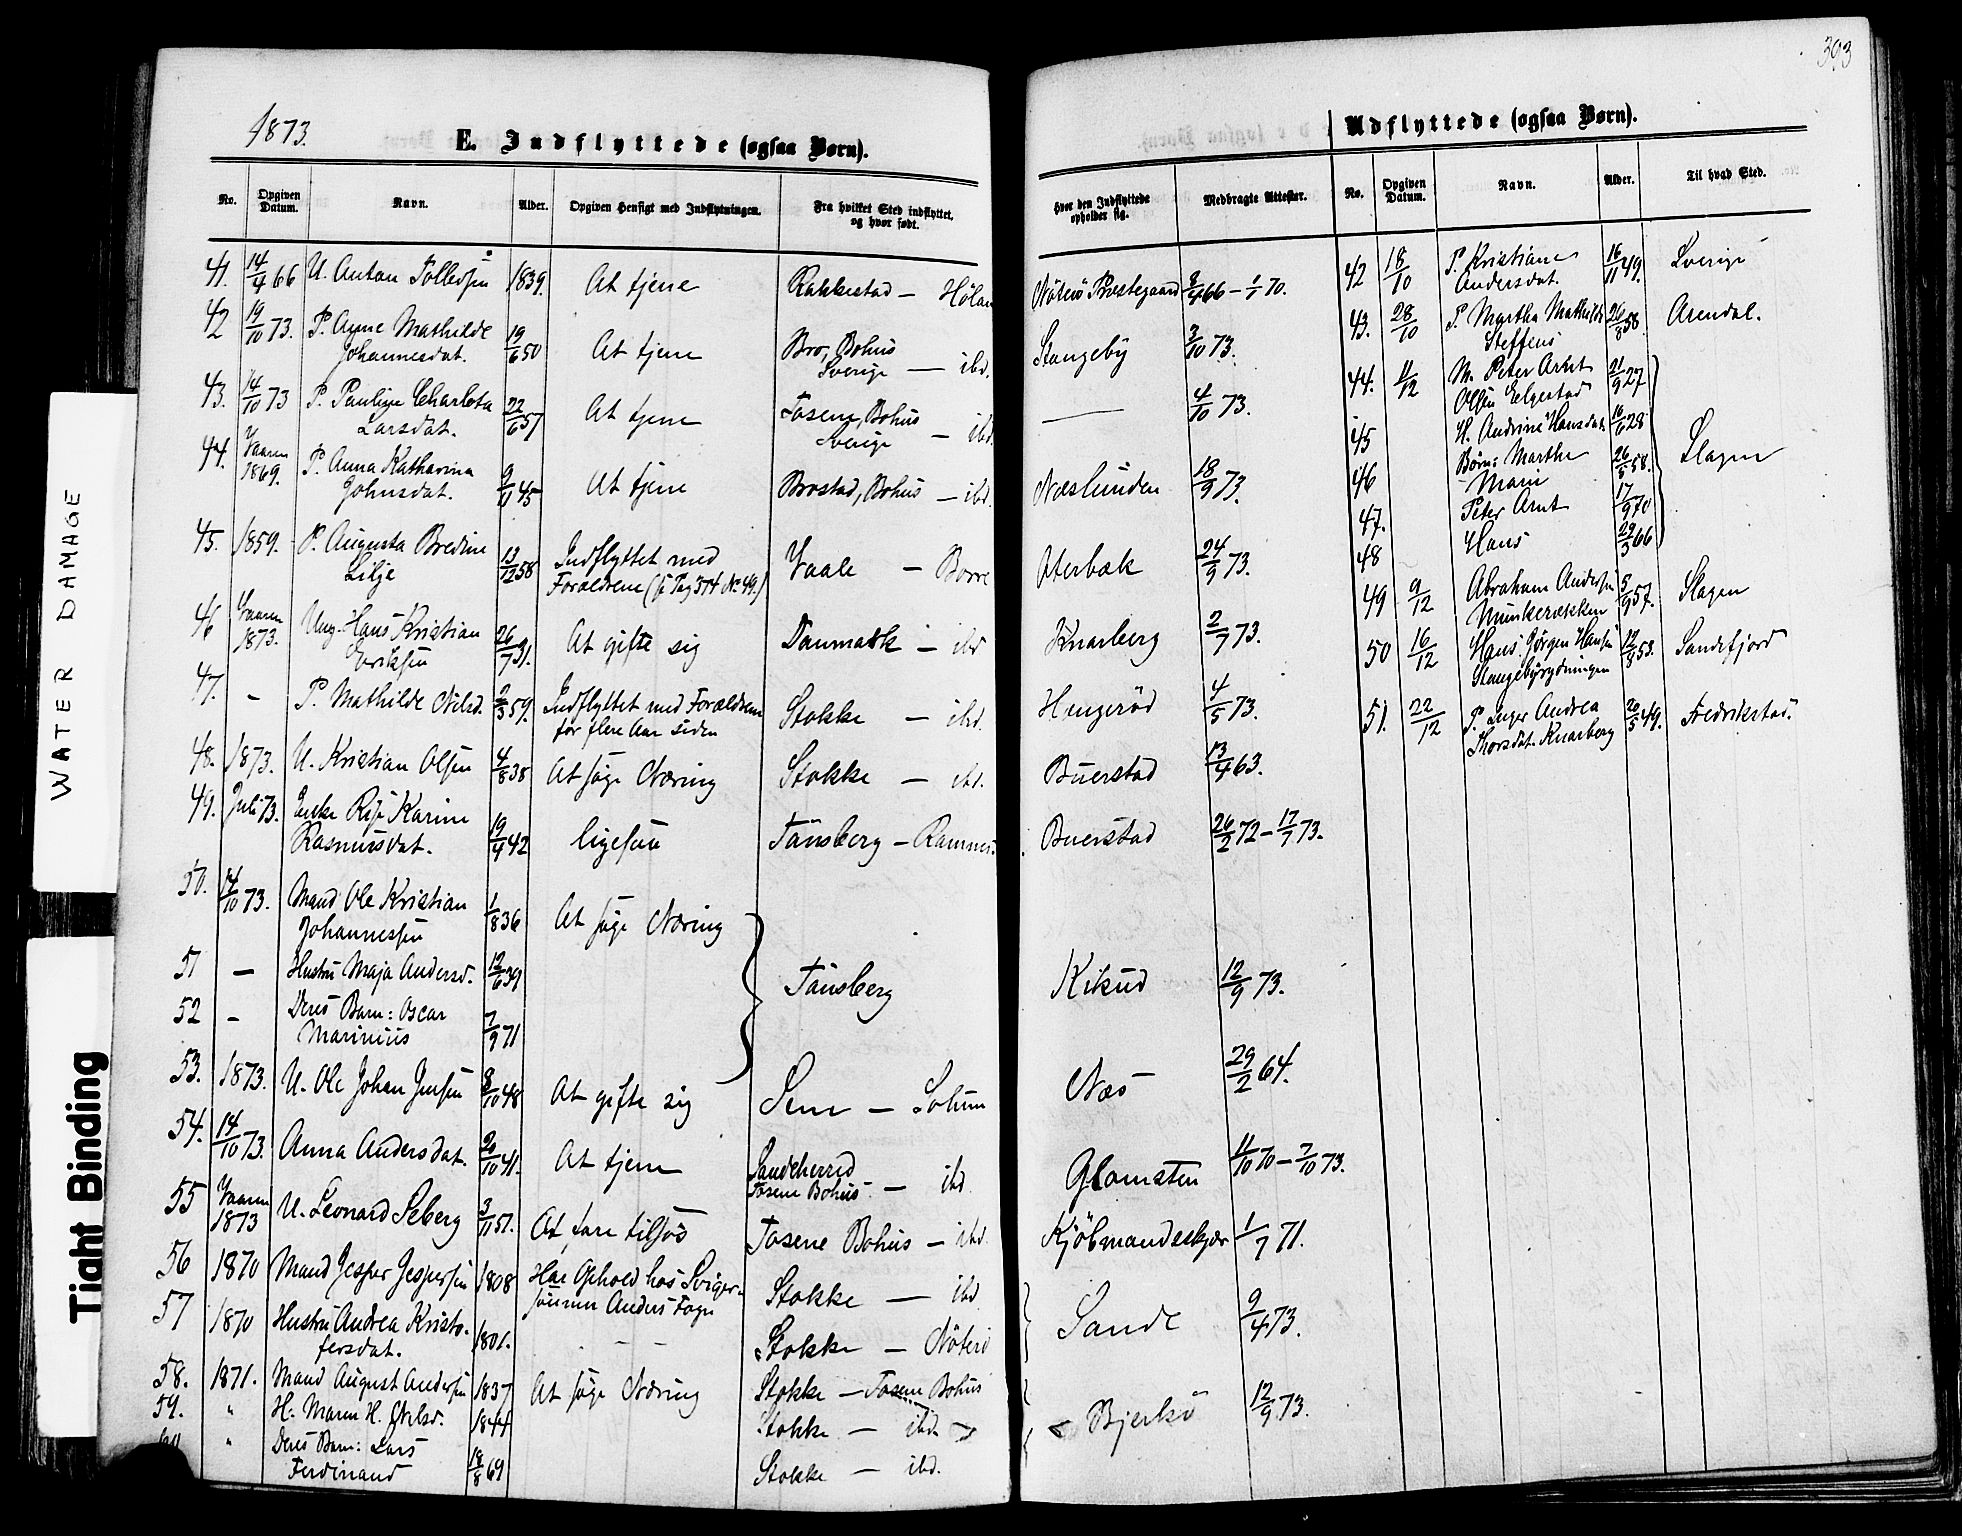 393
1873.
E. Indflyttede (ogsaa Børn).
Udflyttede (ogsaa Børn).
No. Opgiven Datum. Navn. Alder. Opgiven Hensigt med Indflytningen. Fra hvilket Sted indflyttet, og hvor født. Hvor den Indflyttede opholder sig. Medbragte Attester.
41. 14/4 66 U. Anton Tollefsen 1839. At tjene Rakkestad — Høland Nøterø Præstegaard 8/4 66 — 1/1 70.
42 19/10 73. P. Ayne Mathilde Johannesdat. 19/6 50 At tjene Bro, Bohus Sverige — ibd. Stangeby 3/10 73.
43. 14/10 73 P. Pauline Charlota Larsdat. 22/6 57 At tjene Tosene, Bohus Sverige — ibd. — 4/10 73.
44. Vaaren 1869. P. Anna Katharina Johnsdat. 9/11 45 At tjene Brostad, Bohus — ibd. Næslunden 18/9 73.
45. 1859. P. Augusta Bredine Lilje 13/12 58 Indflyttet med Forældrene (se Pag 374 No 49.) Vaale — Borre Oterbæk 24/9 73.
46 Vaaren 1873. Ung. Hans Kristian Eriksen 26/7 31. At gifte sig Danmark — ibd Knarberg 2/7 73.
47. — P. Mathilde Nilsd. 2/3 59. Indflyttet med Forældrene for flere Aar siden Stokke — ibd. Hengerød 4/5 73.
48. 1873. U. Kristian Olsen 4/8 38 At søge Næring Stokke — ibd. Buerstad 13/4 63.
49. Juli 73. Enke Karine Rasmusdat. 19/4 42 ligesaa Tønsberg — Ramnes. Buerstad 26/2 72 — 17/7 73.
50. 14/10 73. Mand Ole Kristian Johannessen 1/8 36 At søge Næring
51 — Hustru Maja Andersd. 12/6 39 Tønsberg Kikud 12/9 73.
52 — Deres Barn: Oscar Marinius 7/9 71
53. 1873. U. Ole Johan Jensen 8/10 48 At gifte sig Sem — Solum Næs 29/2 64.
54. 14/10 73. Anna Andersdat. 20/10 41. At tjene Sandeherred Tosene Bohus — ibd. Glomsten 11/10 70 — 7/10 73.
55 Vaaren 1873 U. Leonard Seberg 3/11 51. At fare tilsøs Tosene Bohus — ibd. Kjøbmandsskjær 1/7 71.
56 1870 Mand Jesper Jespersen 1808 Har Ophold hos Svigersønnen Anders Fogn Stokke — ibd. Sande 9/4 73.
57 1870 Hustru Andrea Kristofersdat. 1801. — — Stokke — Nøterø
58. 1871. Mand August Andersen 1837 At søge Næring Stokke — Tosene Bohus
59. " H. Maren H. Nilsd. 1844 Stokke — ibd. Bjerkø 12/9 73.
60 " Deres Barn: Lars Ferdinand 18/8 69 Stokke — ibd.
No. Opgiven Datum. Navn. Alder. Til hvad Sted.
42 18/10 P. Kristiane Andersdat. 16/11 49. Sverige
43. 28/10 P. Martha Mathilde Steffens 26/8 58 Arendal.
44. 11/12 M. Peter Arnt Olsen Elgestad 21/9 27
45 H. Andrine Hansdat. 16/6 28
46 Børn: Marthe Marie 26/5 58. Slagen
47. Peter Arnt 17/9 70
48 Hans 29/3 66
49 9/12 Abraham Andersen Munkerækken 5/9 57. Slagen
50 16/12 Hans Jørgen Hansen Stangebyrydningen 12/8 53. Sandefjord
51. 22/12 P. Inger Andrea Thorsdat. Knarberg 20/5 49. Fredrikstad.
WATER DAMAGE
Tight Binding